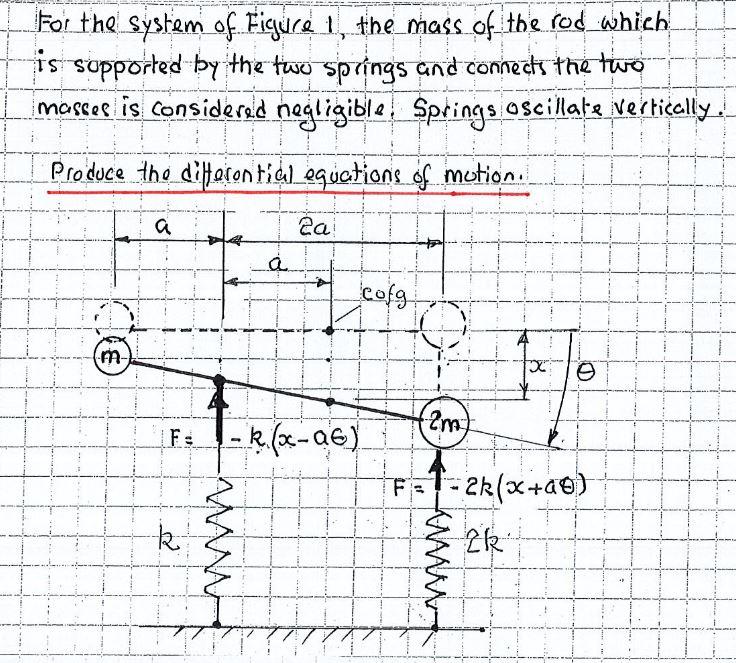 For the system of Figure 1, the mass of the rod which
is supported by the two springs and connects the two
masses is considered negligible. Springs oscillate vertically.
Produce the differential equations of motion.
a 2a
a
cofg
m
x θ
2m
F = -k(x-aθ)
F = -2k(x+aθ)
k 2k